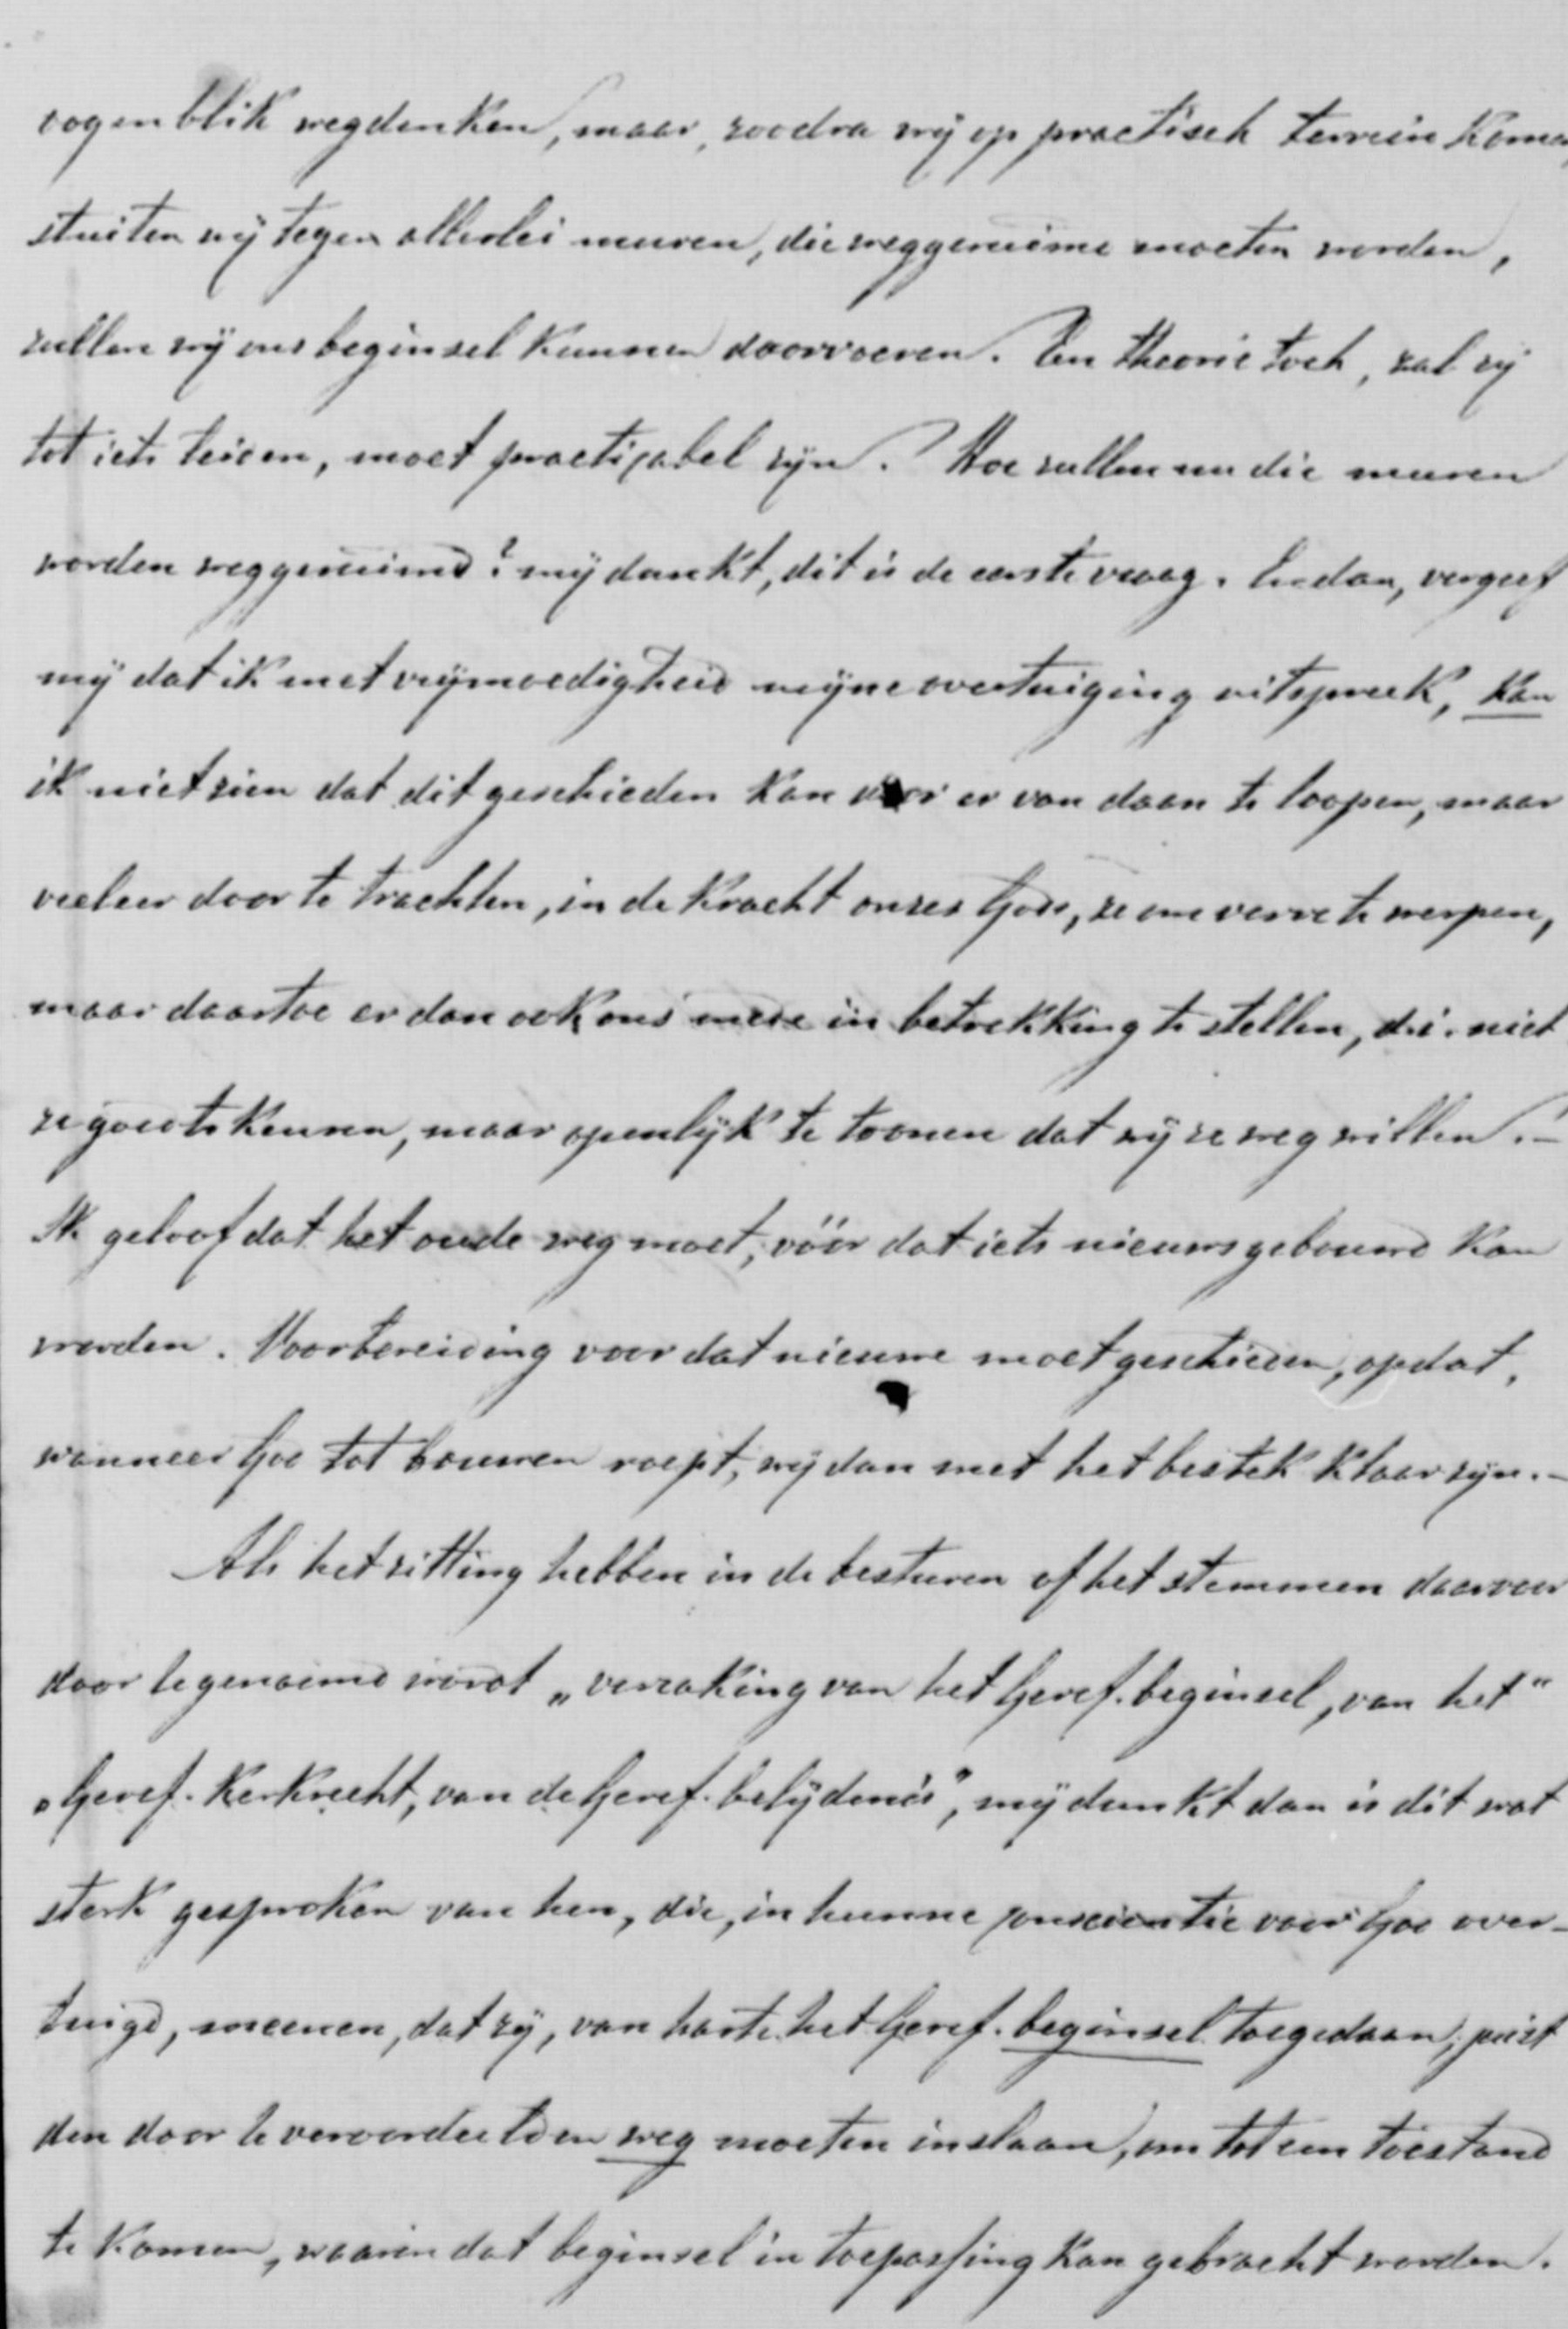 oogenblik wegdenken, maar, zoodra wij op practisch terrein komen
stuiten wij tegen allerlei muren, die weggeruimd moeten worden,
zullen wij ons beginsel kunnen doorvoeren. Een theorie toch, zal zij
tot iets leiden, moet practicabel zijn. Hoe zullen nu die muren
worden weggeruimd? mij dunkt, dit is de eerste vraag. En dan, vergeef
mij dat ik met vrijmoedigheid mijne overtuiging uitspreek, kan
ik niet zien dat dit geschieden kan door er van daan te loopen, maar
veeleer door te trachten, in de kracht onzes Gods, ze omverre te werpen,
maar daartoe er dan ook ons mede in betrekking te stellen, d.i. niet
ze goed te keuren, maar openlijk te toonen dat wij ze weg willen.-
Ik geloof dat het oude weg moet, vóór dat iets nieuws gebouwd kan
worden. Voorbereiding voor dat nieuwe moet geschieden, opdat,
wanneer God tot bouwen roept, wij dan met het bestek klaar zijn.-
Als het zitting hebben in de besturen of het stemmen daarvoor
door U genoemd wordt „verzaking van het Geref. beginsel, van het"
„Geref. Kerkrecht, van de Geref. belijdenis", mij dunkt dan is dit wat
sterk gesproken van hen, die, in hunne conscientie voor God over-
tuigd, meenen, dat zij, van harte het Geref. beginsel toegedaan, juist
den door U veroordeelden weg moeten inslaan, om tot een toestand
te komen, waarin dat beginsel in toepassing kan gebracht worden.